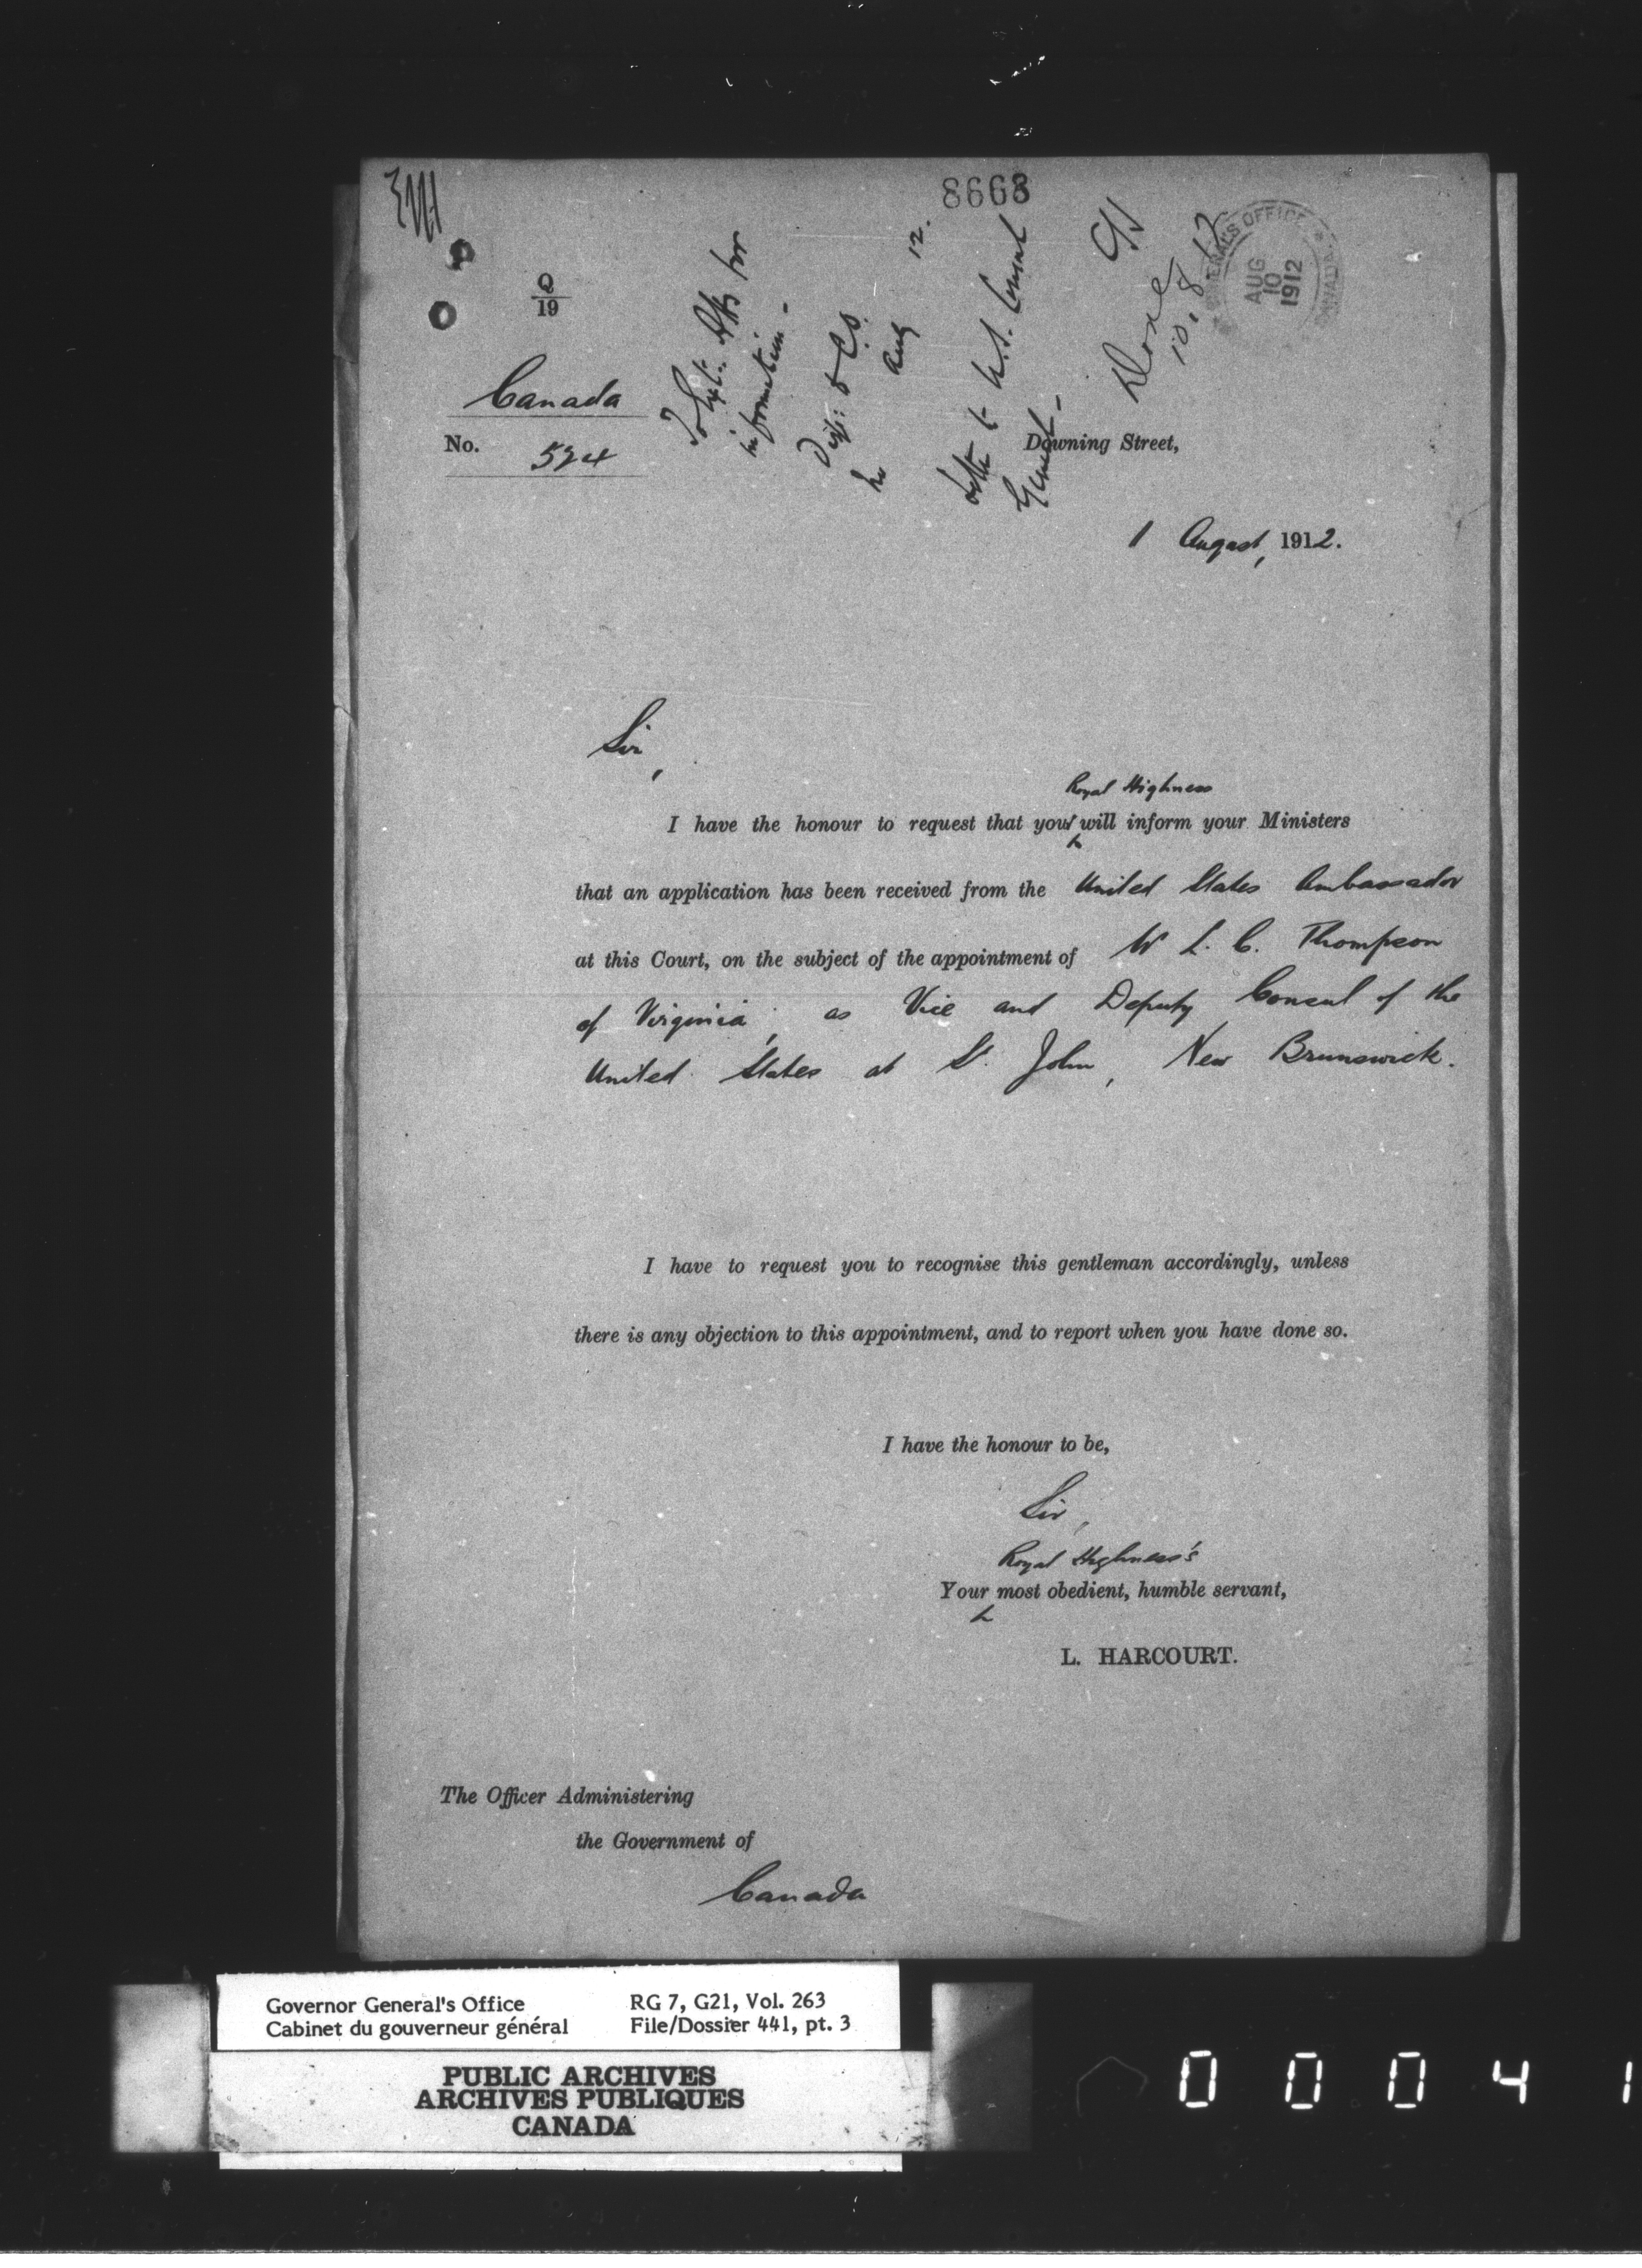 8668
Q
19
Canada
No. 524
To Ext: Affs for
information -
Disp: to C.O.
Aug 12.
to U.S. Consul
General -
Done
10.8.12
GENERAL'S OFFICE
AUG
10
1912
CANADA
Downing Street,
1 August, 1912.
Sir,
Royal Highness
I have the honour to request that your will inform your Ministers
that an application has been received from the United States Ambassador
at this Court, on the subject of the appointment of W L. C. Thompson
of Virginia, as Vice and Deputy Consul of the
United States at St. John, New Brunswick.
I have to request you to recognise this gentleman accordingly, unless
there is any objection to this appointment, and to report when you have done so.
I have the honour to be,
Sir,
Royal Highness's
Your most obedient, humble servant,
L. HARCOURT.
The Officer Administering
the Government of
Canada
Governor General's Office
Cabinet du gouverneur général
RG 7, G21, Vol. 263
File/Dossier 441, pt. 3
PUBLIC ARCHIVES
ARCHIVES PUBLIQUES
CANADA
0 0 0 4 1